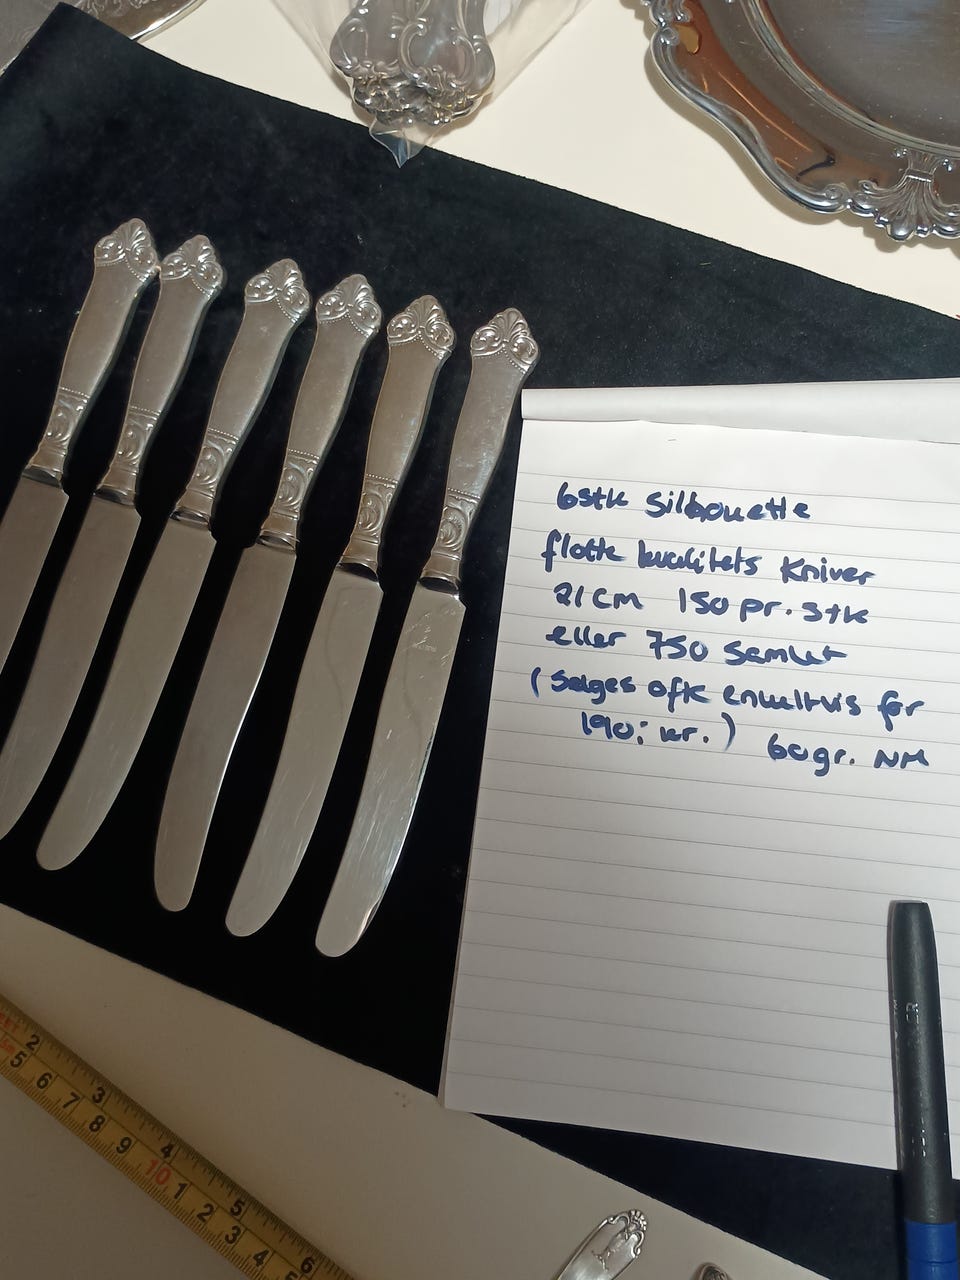 6stk Silhouette
flotte kvalitets Kniver
21cm 150 pr. stk
eller 750 samlet
(selges ofte enkeltvis for
190; kr.)
60gr. NM
2
5 6 3
7 8 4
9 10 1 5
2 3 6
4